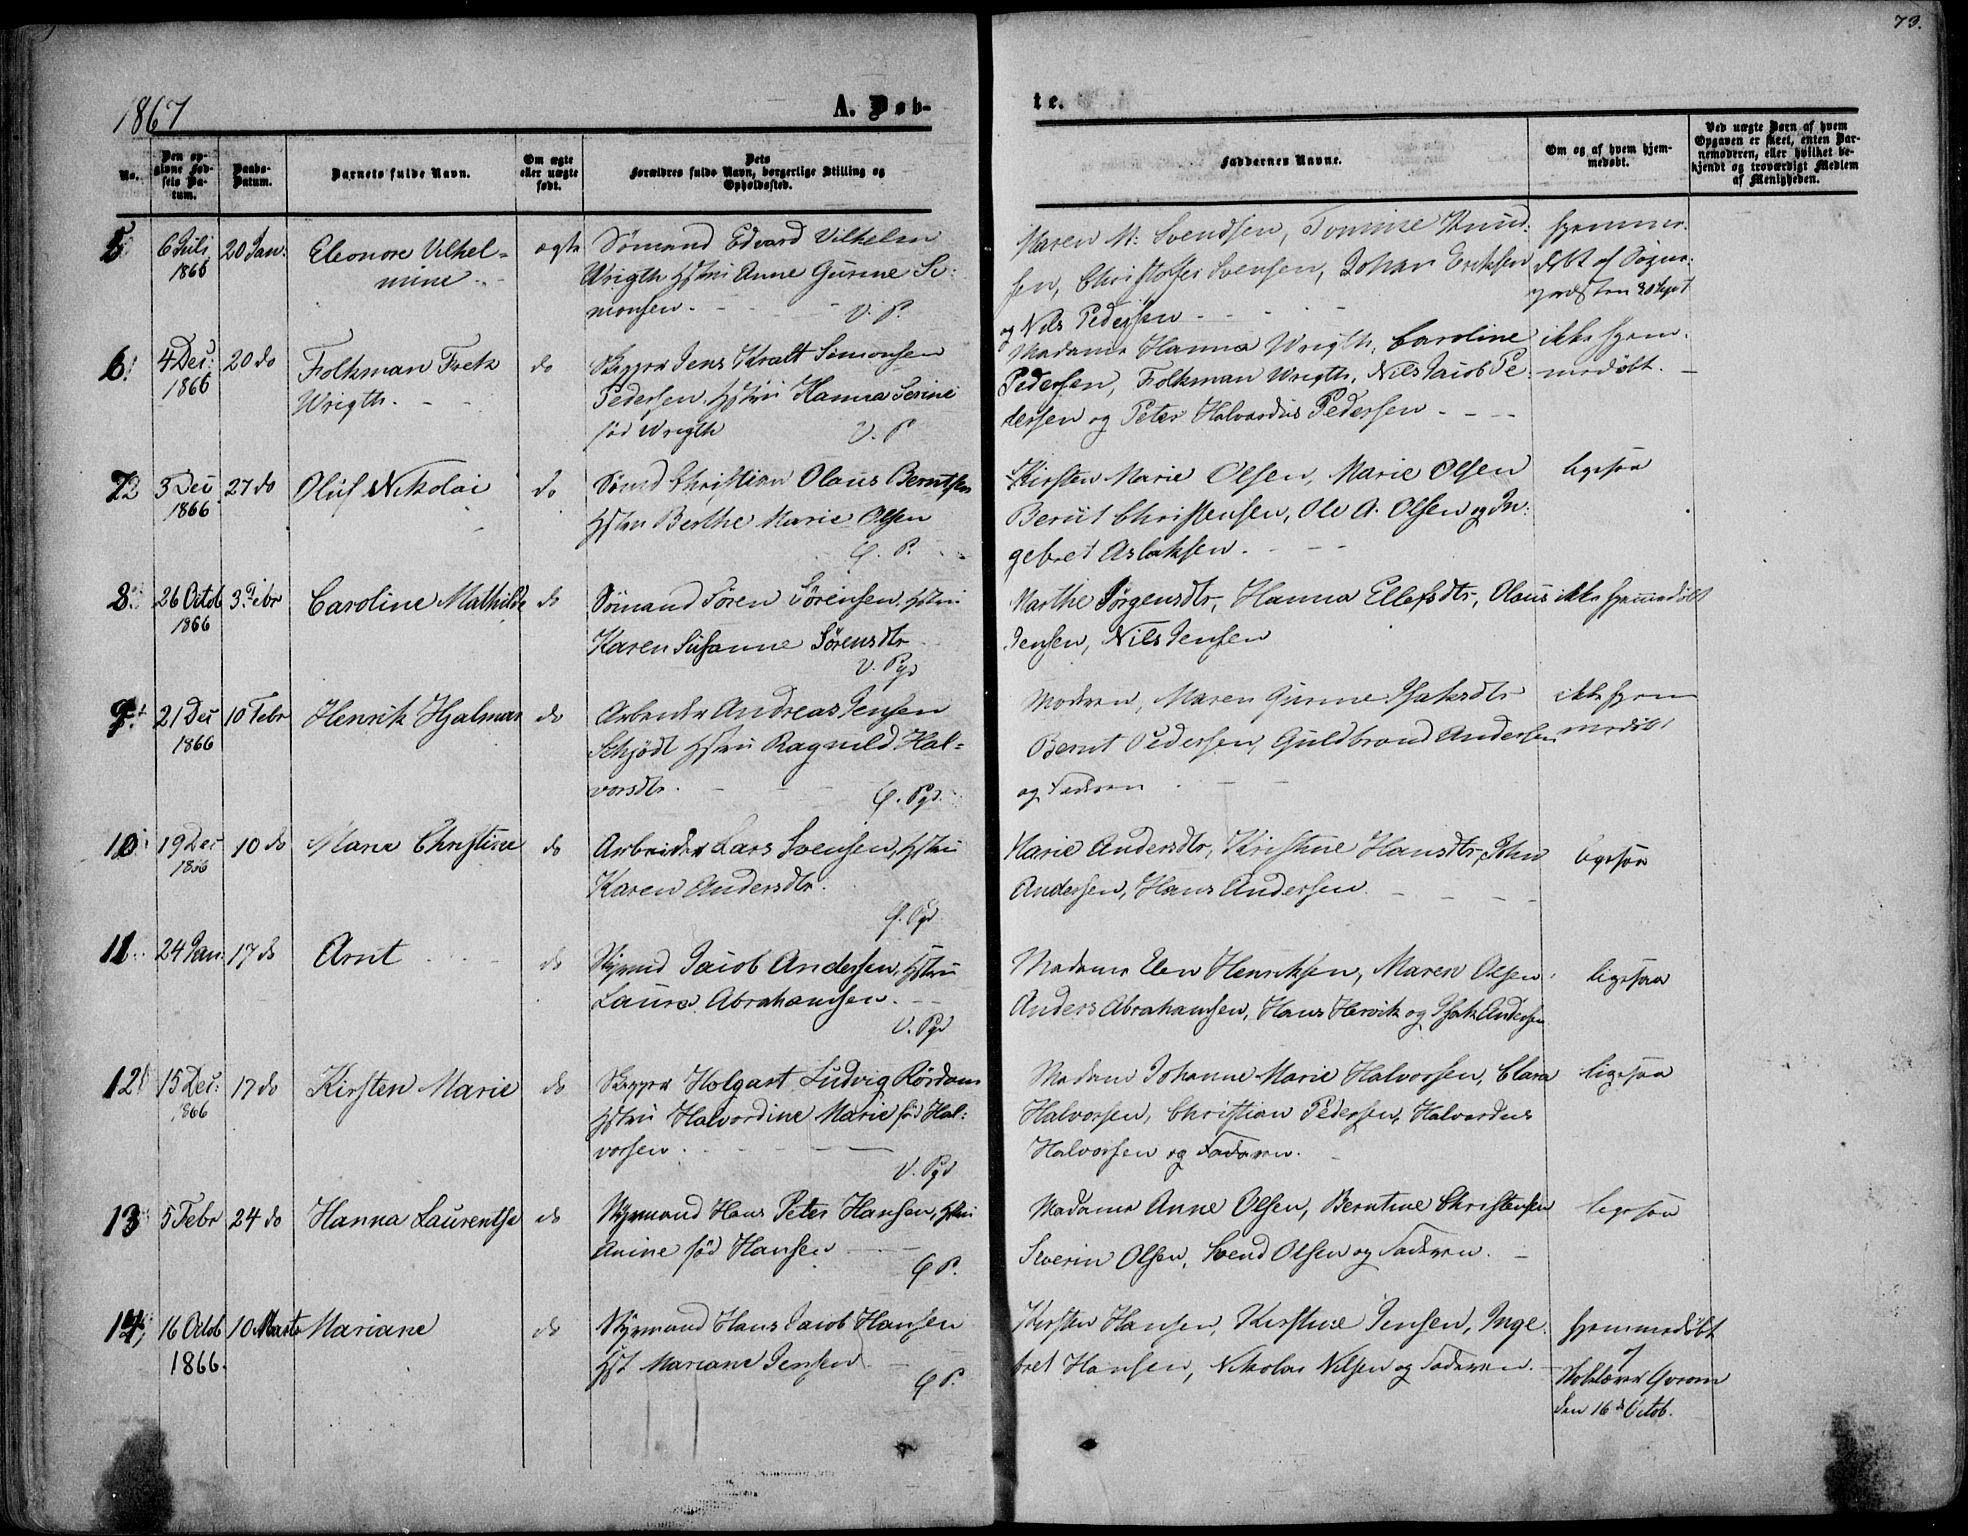 73.
1867
A. Døb-
te.
No.
Den op-
givne Fød-
sels Da-
tum.
Daabs-
Datum.
Barnets fulde Navn.
Om ægte
eller uægte
født.
Dets
Forældres fulde Navn, borgerlige Stilling og
Opholdssted.
Faddernes Navne.
Om og af hvem hjem-
medøbt.
Ved uægte Børn af hvem
Opgaven er skeet, enten Bar-
nemoderen, eller hvilket be-
kjendt og troværdigt Medlem
af Menigheden.
5
6 Juli
1866
20 Jan:
Eleonore Vilhel=
mine
ægte
Sømand Edvard Vilhelm
Wrigth, Hstru Anne Gurine Si:
monsen.
V. P.
Maren M: Svendsen, Tomine Knud:
sen, Christofer Svensen, Johan Eriksen
og Nils Pedersen
hjemme:
døbt af Sogne:
præsten 20 Sept
6.
4 Dec:
1866
20 do
Folkman Fretz
Wrigth.
do
Skipper Jens Kralt Simonsen
Pedersen, Hstru Hanna Serine
fød Wrigth
V. P
Madame Hanna Wrigth, Caroline
Pedersen, Folkman Wrigth, Nils Jacob Pe:
dersen og Peter Halvardus Pedersen
ikke hjem:
medøbt.
7
3 Dec
1866
27 do
Oluf Nikolai
do
Sømd Christian Olaus Berntsen
Hstru Berthe Marie Olsen
Kirsten Marie Olsen, Marie Olsen
Bernt Christensen, Ole A. Olsen og In:
gebret Aslaksen.
ligesaa
8.
26 Octob
1866
3 Febr
Caroline Mathilde
do
Sømand Søren Sørensen, Hstru
Karen Susanne Sørensdtr
V. Pgd
Marthe Jørgensdtr, Hanna Ellefsdtr, Olaus
Jensen, Nils Jensen
ikke hjemmedøbt
9.
21 Dec
1866
10 Febr
Henrik Hjalmar
do
Arbeider Andreas Jensen
Schjødt Hstru Ragnild Hal=
vorsdtr.
Modren, Maren Gurine Isaksdtr
Bernt Pedersen, Guldbrand Andersen
og Faderen
ikke hjem
medøbt
10
19 Dec
1866
10 do
Marie Christine
do
Arbeider Lars Svensen, Hstru
Karen Andersdtr.
Marie Andersdtr, Kristine Hansdtr, John
Andersen, Hans Andersen
ligesaa
11
24 Jan:
17 do
Arnt
do
Styrmd Jacob Andersen, Hstru
Laura Abrahamsen.
V. Pgd
Madame Elen Henriksen, Maren Olsen
Anders Abrahamsen, Hans Henrik og Isak Andersen
ligesaa
12
15 Dec:
1866
17 do
Kirsten Marie
do
Skipper Holgart Ludvig Rördam
Hstru Halvordine Marie fød Hal:
vorsen.
V. Pgd
Madam Johanne Marie Halvorsen, Clara
Halvorsen, Christian Pedersen, Halvardus
Halvorsen og Faderen.
ligesaa
13
5 Febr
24 do
Hanna Laurentse
do
Styrmand Hans Peter Hansen, Hstru
Anine fød Hansen
Madame Anne Olsen, Berntine Christensen
Severin Olsen, Svend Olsen og Faderen.
ligesaa
14,
16 Octob
1866.
10 Marts
Mariane
do
Styrmand Hans Jacob Hansen
Hst Mariane Jensen
Kirsten Hansen, Kirstine Jensen, Inge:
bret Hansen, Nikolai Nilsen og Faderen.
hjemmedøbt
af
den 16de Octob.